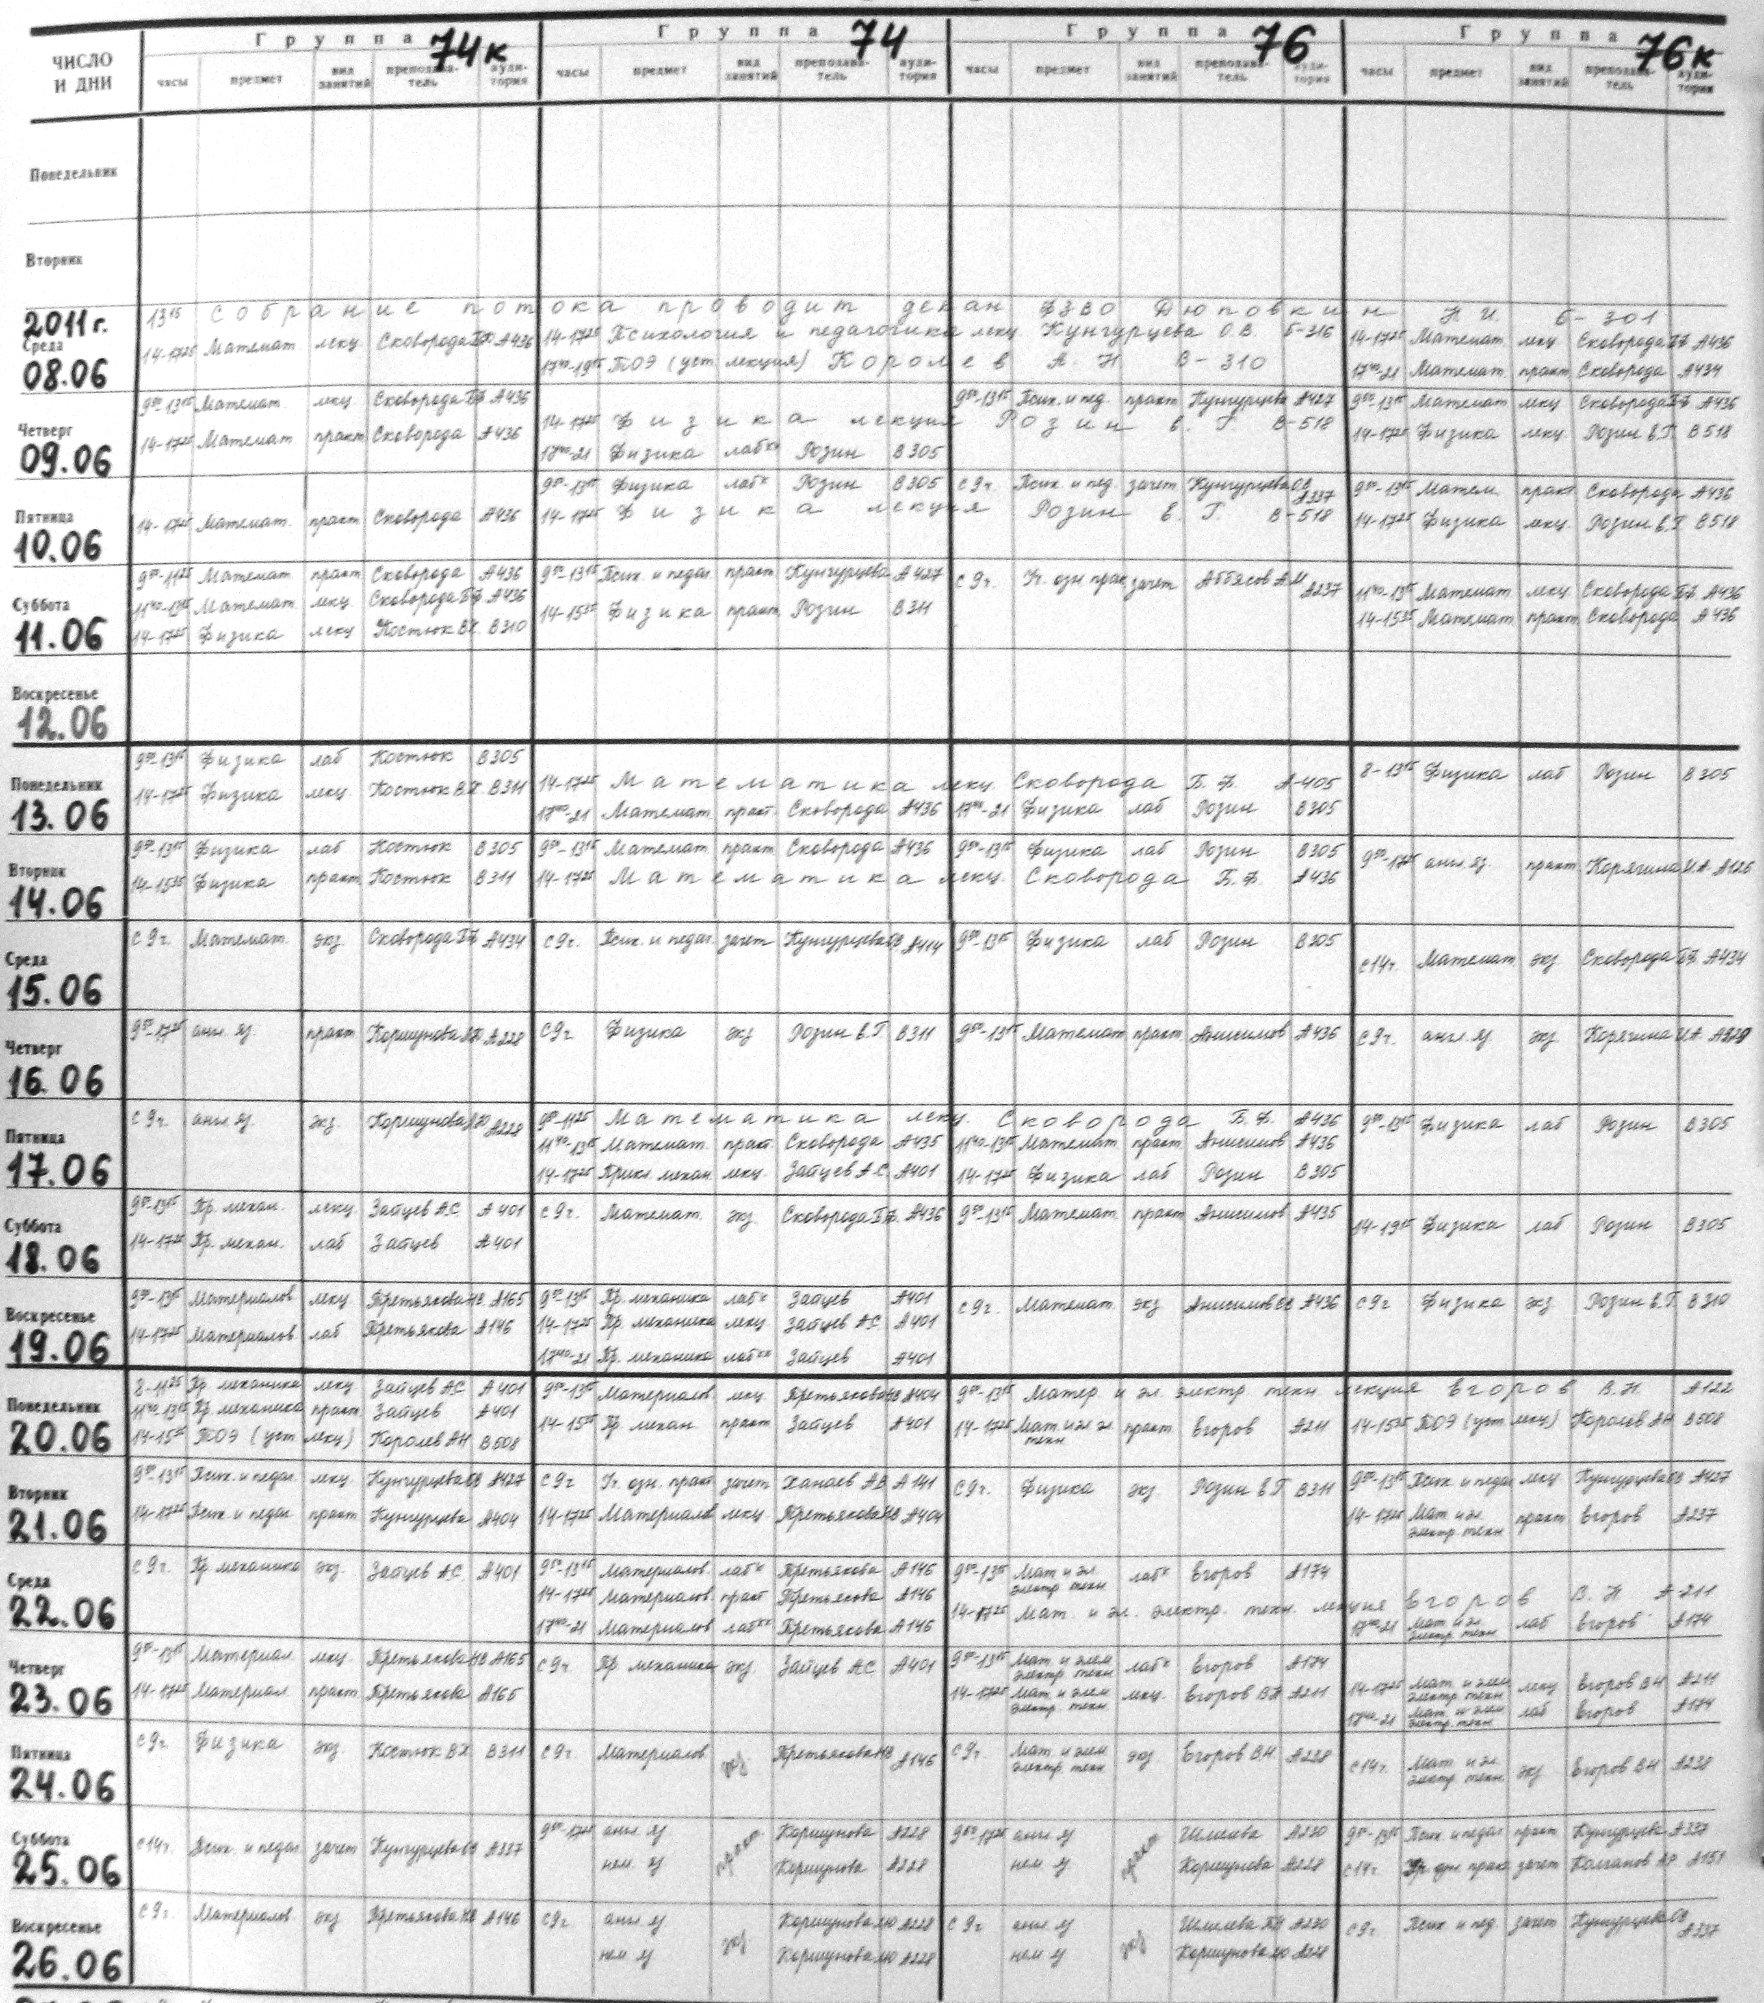 ЧИСЛО И ДНИ
Группа 74к Группа 74 Группа 76 Группа 76к
часы предмет вид занятий преподаватель аудитория часы предмет вид занятий преподаватель аудитория часы предмет вид занятий преподаватель аудитория часы предмет вид занятий преподаватель аудитория
Понедельник
Вторник
2011 г.
Среда
08.06
13¹⁵ собрание потока проводит декан ФЗВО Дюповкин Н.И. Б-301
14-17²⁵ Математ. лекц. Сковорода Б.Ф. А436
14-17²⁵ Психология и педагогика лекц Кунгурцева О.В. Б-316
17⁴⁰-19¹⁵ ТОЭ (уст. лекция) Королев А.Н. В-310
14-17²⁵ Математ. лекц Сковорода Б.Ф. А436
17⁴⁰-21 Математ. практ. Сковорода А434
Четверг
09.06
9⁵⁰-13¹⁵ Математ. лекц. Сковорода Б.Ф. А436
14-17²⁵ Математ. практ Сковорода А436
14-17²⁵ Физика лекция Розин В.Г. В-518
17⁴⁰-21 Физика лаб** Розин В305
9⁵⁰-13¹⁵ Псих. и пед. практ Кунгурцева А427
9⁵⁰-13¹⁵ Математ лекц Сковорода Б.Ф. А436
14-17²⁵ Физика лекц. Розин В.Г. В518
Пятница
10.06
14-17²⁵ Математ. практ. Сковорода А436
9⁵⁰-13¹⁵ Физика лаб* Розин В305
14-17²⁵ Физика лекция Розин В.Г. В-518
с 9ч. Псих. и пед. зачет Кунгурцева О.В. А337
9⁵⁰-13¹⁵ Матем. практ. Сковорода А436
14-17²⁵ Физика лекц. Розин В.Г. В518
Суббота
11.06
9⁵⁰-11²⁵ Математ практ. Сковорода А436
11⁴⁰-13¹⁵ Математ. лекц. Сковорода Б.Ф. А436
14-17²⁵ Физика лекц Костюк В.Х. В310
9⁵⁰-13¹⁵ Псих. и педаг. практ. Кунгурцева А427
14-15³⁵ Физика практ. Розин В311
с 9ч. Уч. озн. прак. зачет Аббясов А.М. А237
11⁴⁰-13¹⁵ Математ. лекц Сковорода Б.Ф. А436
14-15³⁵ Математ. практ. Сковорода А436
Воскресенье
12.06
Понедельник
13.06
9⁵⁰-13¹⁵ Физика лаб Костюк В305
14-17²⁵ Физика лекц. Костюк В.Х. В311
14-17²⁵ Математика лекц. Сковорода Б.Ф. А-405
17⁴⁰-21 Математ. практ. Сковорода А436
17⁴⁰-21 Физика лаб Розин В305
8-13¹⁵ Физика лаб Розин В305
Вторник
14.06
9⁵⁰-13¹⁵ Физика лаб Костюк В305
14-15³⁵ Физика практ Костюк В311
9⁵⁰-13¹⁵ Математ. практ. Сковорода А436
14-17²⁵ Математика лекц. Сковорода Б.Ф. А436
9⁵⁰-13¹⁵ Физика лаб Розин В305
9⁵⁰-17²⁵ англ. яз. практ. Корягина И.А. А126
Среда
15.06
с 9ч. Математ. экз. Сковорода Б.Ф. А434
с 9ч. Псих. и педаг. зачет Кунгурцева О.В. А414
9⁵⁰-13¹⁵ Физика лаб Розин В305
с 14ч. Математ. экз. Сковорода Б.Ф. А434
Четверг
16.06
9⁵⁰-17²⁵ англ. яз. практ. Коршунова А228
с 9ч. Физика экз Розин В.Г. В311
9⁵⁰-13¹⁵ Математ практ. Анисимов А436
с 9ч. англ. яз экз Корягина И.А. А229
Пятница
17.06
с 9ч. англ. яз. экз. Коршунова А228
9⁵⁰-11²⁵ Математика лекц. Сковорода Б.Ф. А436
11⁴⁰-13¹⁵ Математ. практ. Сковорода А435
14-17²⁵ Прикл. механ. лекц. Зайцев А.С. А401
11⁴⁰-13¹⁵ Математ практ. Анисимов А436
14-17²⁵ Физика лаб Розин В305
9⁵⁰-13¹⁵ Физика лаб Розин В305
Суббота
18.06
9⁵⁰-13¹⁵ Пр. механ. лекц. Зайцев А.С. А401
14-17²⁵ Пр. механ. лаб Зайцев А401
с 9ч. Математ. экз. Сковорода Б.Ф. А436
9⁵⁰-13¹⁵ Математ. практ. Анисимов А435
14-19¹⁵ Физика лаб Розин В305
Воскресенье
19.06
9⁵⁰-13¹⁵ Материалов лекц Третьякова Н.В. А165
14-17²⁵ Материалов. лаб Третьякова А146
9⁵⁰-13¹⁵ Пр. механика лаб* Зайцев А401
14-17²⁵ Пр. механика лекц Зайцев А.С. А401
17⁴⁰-21 Пр. механика лаб** Зайцев А401
с 9ч. Математ. экз. Анисимов А436
с 9ч Физика экз Розин В.Г. В310
Понедельник
20.06
8-11²⁵ Пр. механика лекц. Зайцев А.С. А401
11⁴⁰-13¹⁵ Пр. механика практ. Зайцев А401
14-15³⁵ ТОЭ (уст. лекц) Королев А.Н. В508
9⁵⁰-13¹⁵ Материалов. лекц. Третьякова Н.В. А404
14-15³⁵ Пр. механ практ. Зайцев А401
9⁵⁰-13¹⁵ Матер. и эл. электр. техн. лекция Егоров В.Н. А122
14-17²⁵ Мат. и эл. эл. техн. практ. Егоров А211
14-15³⁵ ТОЭ (уст. лекц) Королев А.Н. В508
Вторник
21.06
9⁵⁰-13¹⁵ Псих. и педаг. лекц. Кунгурцева О.В. А427
14-17²⁵ Псих. и педаг. практ Кунгурцева А404
с 9ч Уч. озн. практ. зачет Ханаев А.В. А141
14-17²⁵ Материалов лекц. Третьякова Н.В. А404
с 9ч. Физика экз. Розин В.Г. В311
9⁵⁰-13¹⁵ Псих. и педаг. лекц Кунгурцева О.В. А427
14-17²⁵ Мат. и эл. электр. техн. практ. Егоров А237
Среда
22.06
с 9ч. Пр. механика экз. Зайцев А.С. А401
9⁵⁰-13¹⁵ Материалов. лаб* Третьякова А146
14-17²⁵ Материалов. практ Третьякова А146
17⁴⁰-21 Материалов лаб** Третьякова А146
9⁵⁰-13¹⁵ Мат. и эл. электр. техн. лаб* Егоров А174
14-17²⁵ Мат. и эл. электр. техн. лекция Егоров В.Н. А-211
17⁴⁰-21 Мат. и эл. электр. техн. лаб Егоров А174
Четверг
23.06
9⁵⁰-13¹⁵ Материал. лекц. Третьякова Н.В. А165
14-17²⁵ Материал. практ Третьякова А165
с 9ч. Пр. механика экз. Зайцев А.С. А401
9⁵⁰-13¹⁵ Мат. и элем. электр. техн. лаб* Егоров А174
14-17²⁵ Мат. и элем. электр. техн. лекц. Егоров В.Н. А211
14-17²⁵ Мат. и элем. электр. техн. лекц Егоров В.Н. А211
17⁴⁰-21 Мат. и элем. электр. техн. лаб Егоров А174
Пятница
24.06
с 9ч. Физика экз. Костюк В.Х. В311
с 9ч. Материалов. экз Третьякова Н.В. А146
с 9ч. Мат. и элем. электр. техн. экз. Егоров В.Н. А238
с 14ч. Мат. и эл. электр. техн. экз. Егоров В.Н. А238
Суббота
25.06
с 14ч. Псих. и педаг. зачет Кунгурцева О.В. А337
9⁵⁰-17²⁵ англ. яз практ. Коршунова А228
нем. яз Коршунова А228
9⁵⁰-17²⁵ англ. яз практ. Шмелева А230
нем. яз Коршунова А228
9⁵⁰-13¹⁵ Псих. и педаг. практ. Кунгурцева А337
с 14ч. зачет А151
Воскресенье
26.06
с 9ч. Материалов. экз Третьякова Н.В. А146
с 9ч. англ. яз экз Коршунова А228
нем. яз Коршунова А228
с 9ч англ. яз экз Шмелева А230
нем. яз Коршунова А228
с 9ч. Псих. и пед. зачет Кунгурцева О.В. А337